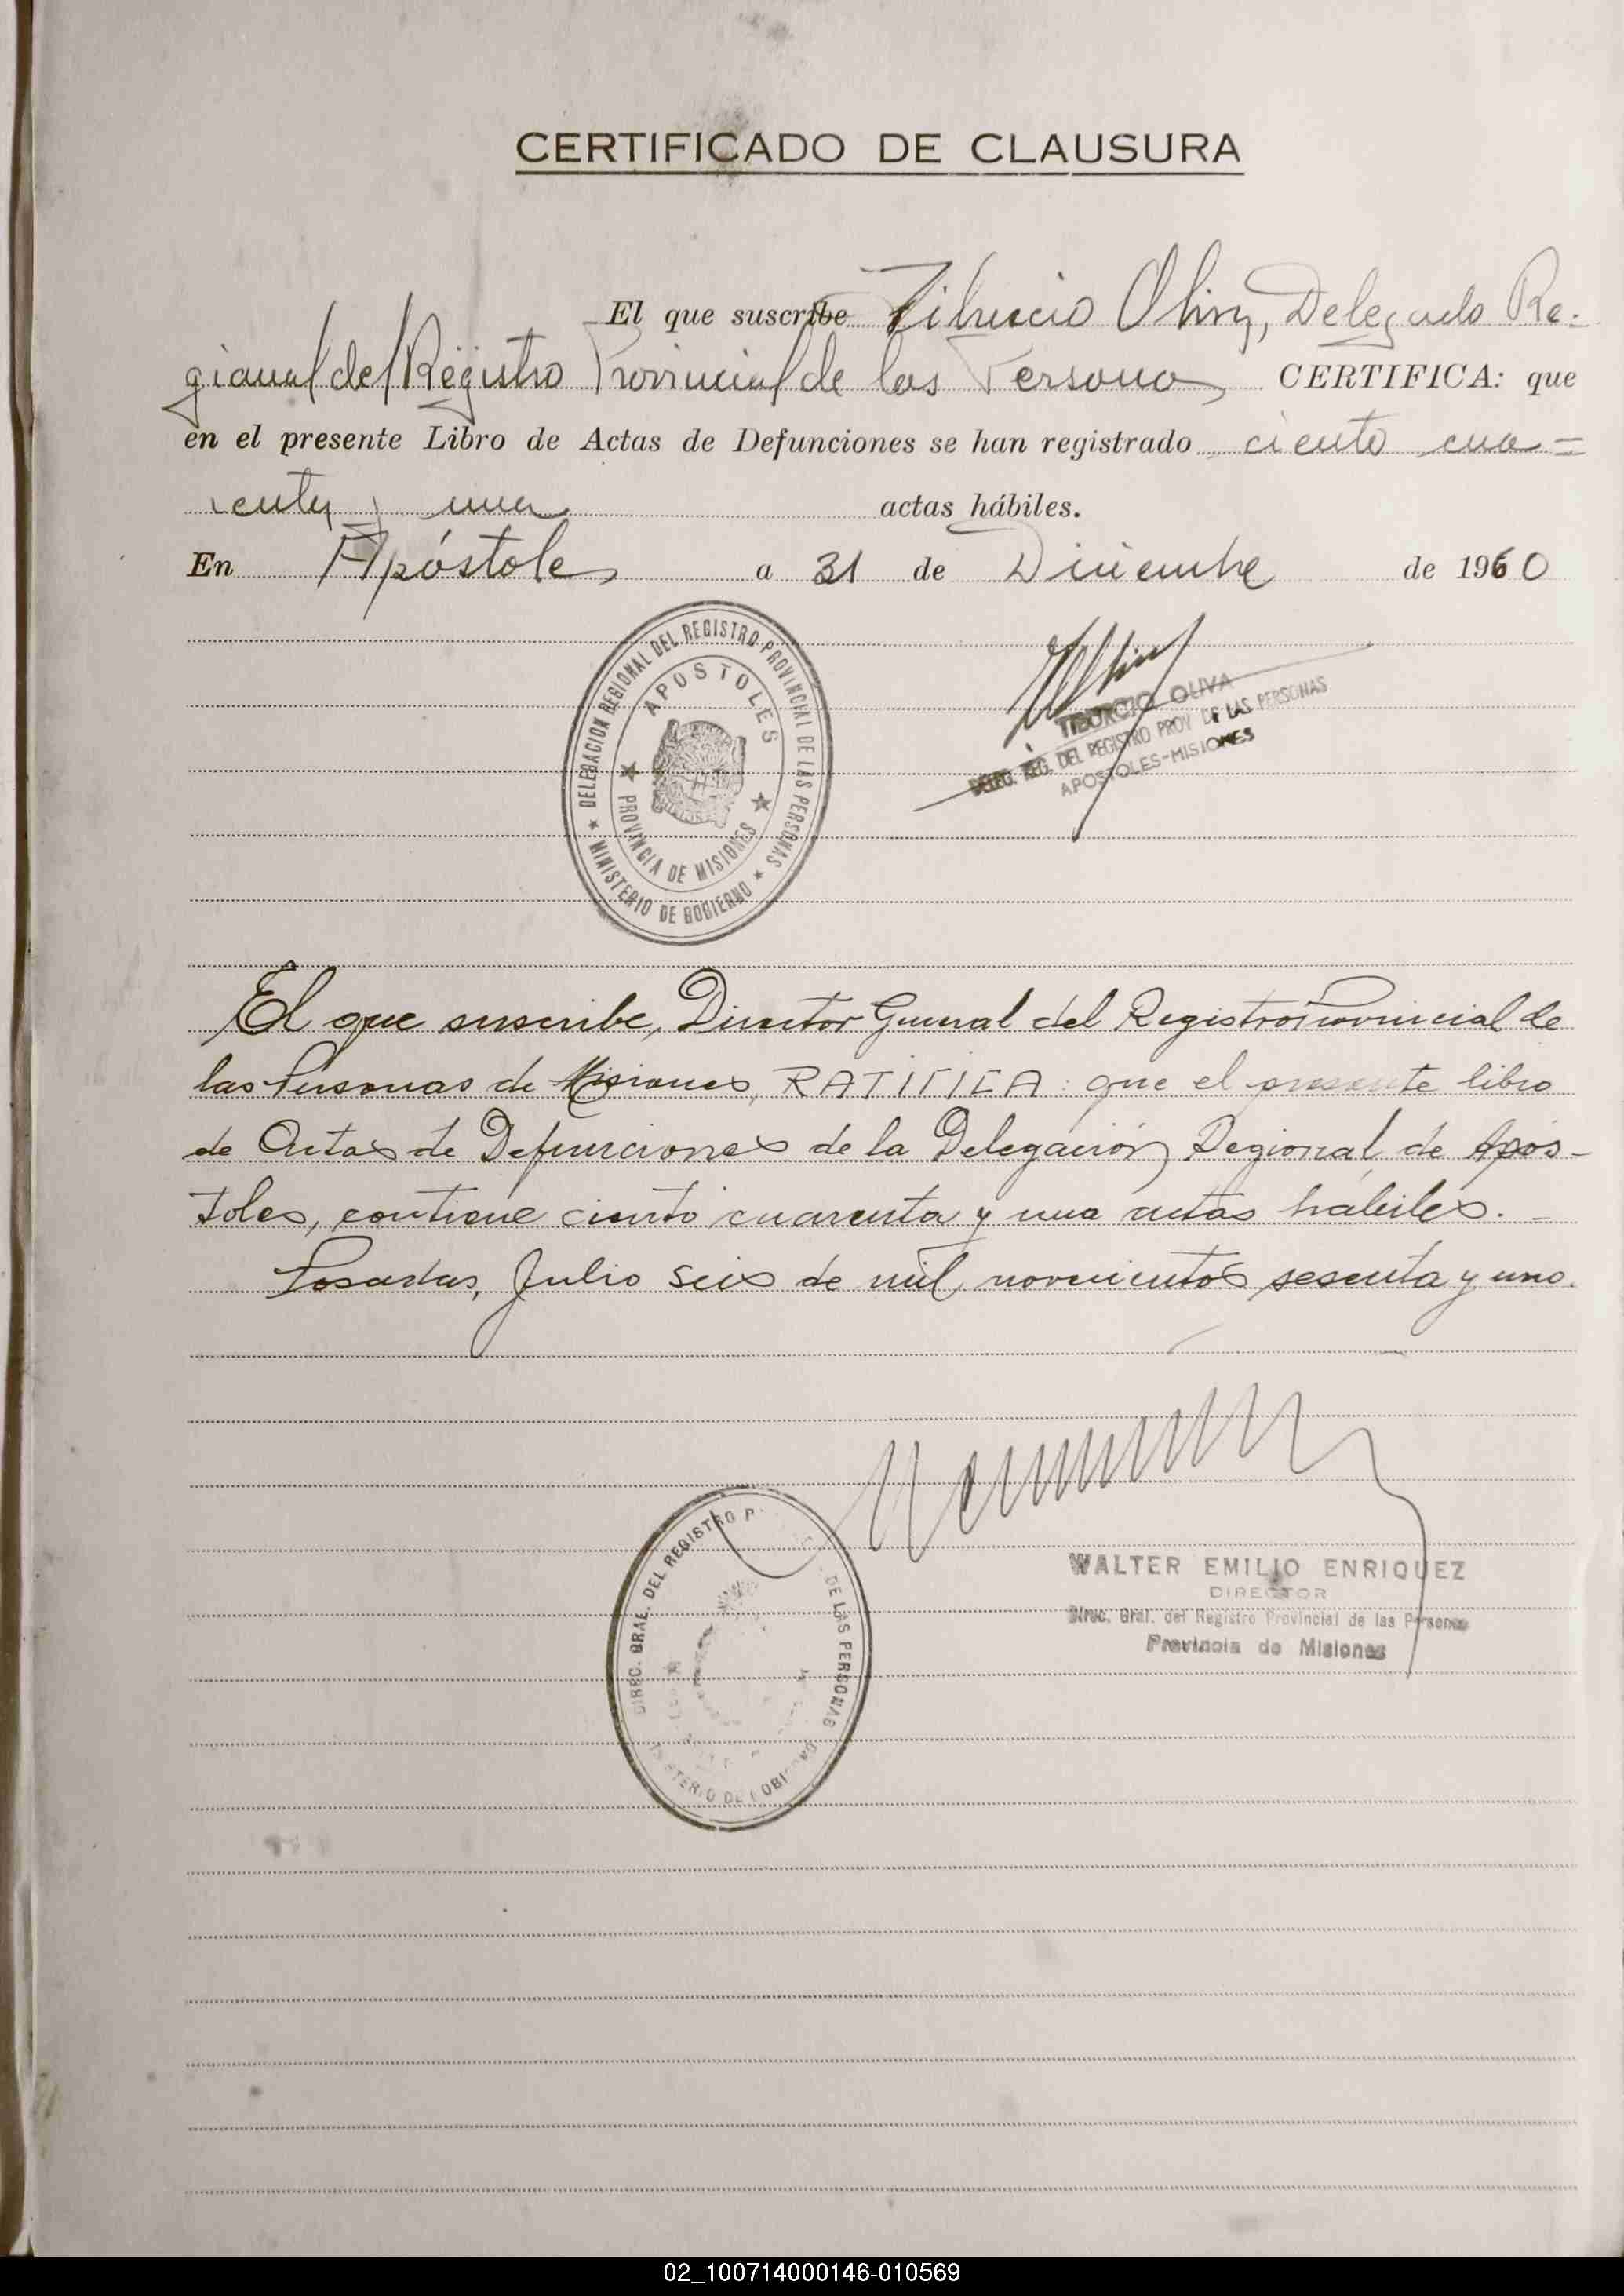 CERTIFICADO DE CLAUSURA
El que suscribe Tiburcio Oliva, Delegado Re-
gional del Registro Provincial de las Personas CERTIFICA: que
en el presente Libro de Actas de Defunciones se han registrado ciento cua=
renta y una actas hábiles.
En Apóstoles a 31 de Diciembre de 1960
DELEGACION REGIONAL DEL REGISTRO PROVINCIAL DE LAS PERSONAS
APOSTOLES
PROVINCIA DE MISIONES
MINISTERIO DE GOBIERNO
TIBURCIO OLIVA
DELEG. REG. DEL REGISTRO PROV DE LAS PERSONAS
APOSTOLES-MISIONES
El que suscribe, Director General del Registro Provincial de
las Personas de Misiones, RATIFICA: que el presente libro
de Actas de Defunciones de la Delegación Regional de Após-
toles, contiene ciento cuarenta y una actas hábiles. -
Posadas, Julio seis de mil novecientos sesenta y uno.
DIREC. GRAL. DEL REGISTRO P DE LAS PERSONAS
WALTER EMILIO ENRIQUEZ
DIRECTOR
Direc. Gral. del Registro Provincial de las Personas
Provincia de Misiones
02_100714000146-010569